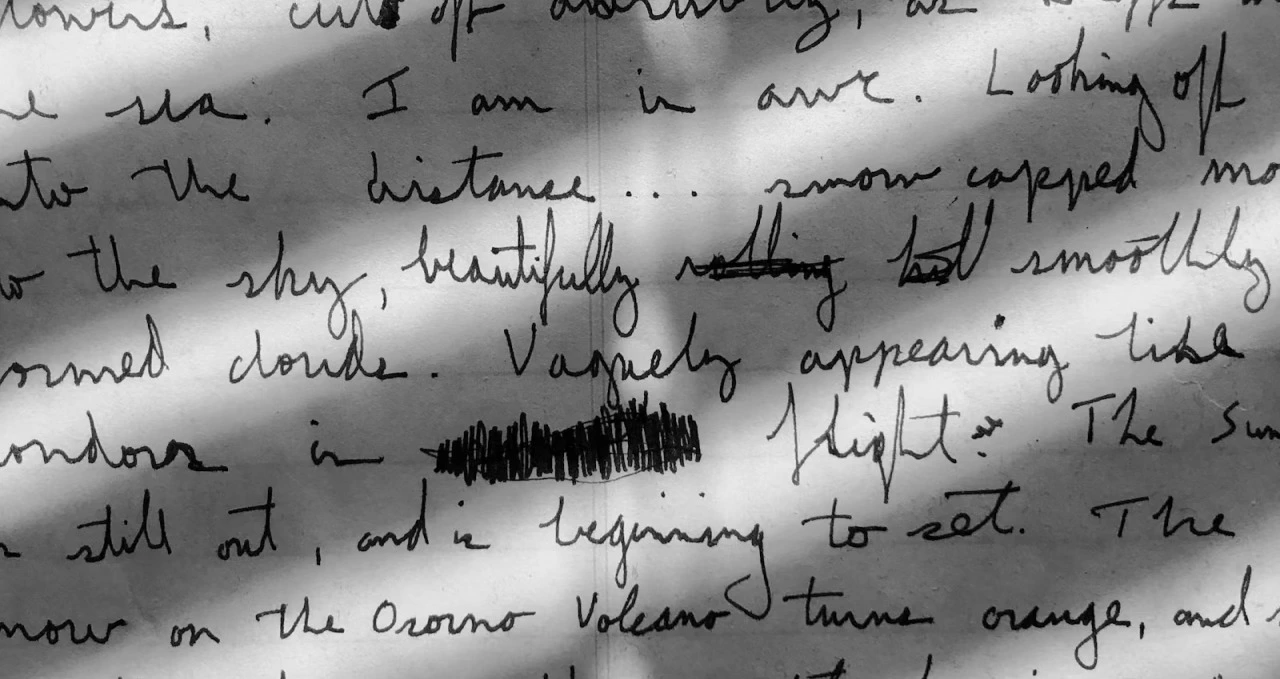 cut off
sea. I am in awe. Looking off
the distance... snow capped
the sky, beautifully rolling smoothly
ormed clouds. Vaguely appearing like
ondors in flight. The Sun
still out, and is beginning to set. The
now on the Osorno Volcano turns orange, and